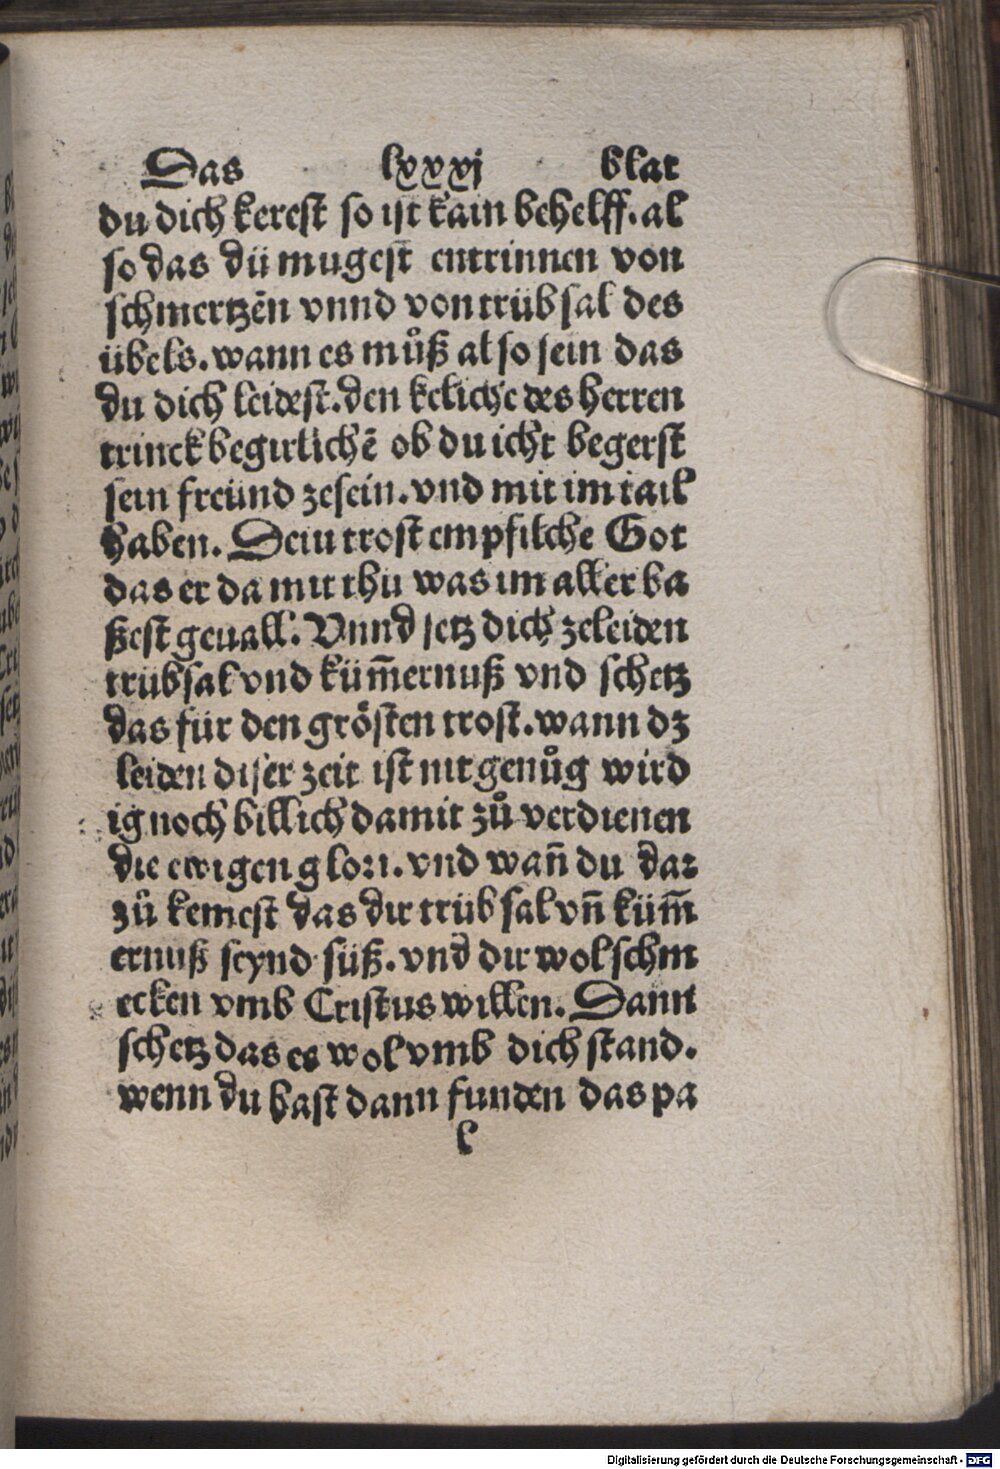 Das lxxxj blat
du dich kerest so ist kain behelff. al
so das dü mugest entrinnen von
schmertzēn vnnd von trübsal des
übels. wann es můß also sein das
du dich leidest. den keliche des herren
trinck begirlichē ob du icht begerst
sein freünd zesein. vnd mit im tail
haben. Dein trost empfilche Got
das er da mit thu was im aller ba
ßest geuall. Vnnd setz dich zeleiden
trübsal vnd küm̄ernuß vnd schetz
das für den grösten trost. wann dz
leiden diser zeit ist nit genůg wird
ig noch billich damit zů verdienen
die ewigen glori. vnd wan̄ du dar
zů kemest das dir trübsal vn̄ küm̄
ernuß seynd süß. vnd dir wol schm
ecken vmb Cristus willen. Dann
schetz das es wol vmb dich stand.
wenn du hast dann funden das pa
l
Digitalisierung gefördert durch die Deutsche Forschungsgemeinschaft - DFG